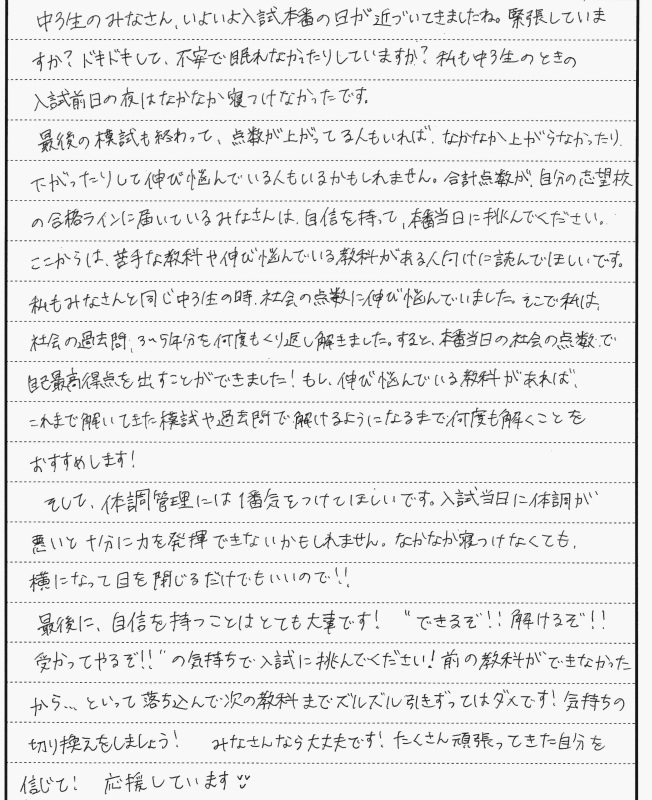 中3生のみなさん、いよいよ入試本番の日が近づいてきましたね。緊張していま
すか?ドキドキして、不安で眠れなかったりしていますか?私も中3生のときの
入試前日の夜はなかなか寝つけなかったです。
最後の模試も終わって、点数が上がってる人もいれば、なかなか上がらなかったり、
下がったりして伸び悩んでいる人もいるかもしれません。合計点数が、自分の志望校
の合格ラインに届いているみなさんは、自信を持って、本番当日に挑んでください。
ここからは、苦手な教科や伸び悩んでいる教科がある人向けに読んでほしいです。
私もみなさんと同じ中3生の時、社会の点数に伸び悩んでいました。そこで私は、
社会の過去問、3い5年分を何度もくり返し解きました。すると、本番当日の社会の点数で
自己最高得点を出すことができました!もし、伸び悩んでいる教科があれば、
これまで解いてきた模試や過去問で解けるようになるまで何度も解くことを
おすすめします!
そして、体調管理には1番気をつけてほしいです。入試当日に体調が
悪いと十分に力を発揮できないかもしれません。なかなか寝つけなくても、
横になって目を閉じるだけでもいいので!!
最後に、自信を持つことはとても大事です!"できるぞ!!解けるぞ!!
受かってやるぞ!!"の気持ちで入試に挑んでください!前の教科ができなかった
から…、といって落ち込んで次の教科までズルズル引きずってはダメです!気持ちの
切り換えをしましょう! みなさんなら大丈夫です!たくさん頑張ってきた自分を
信じて! 応援しています